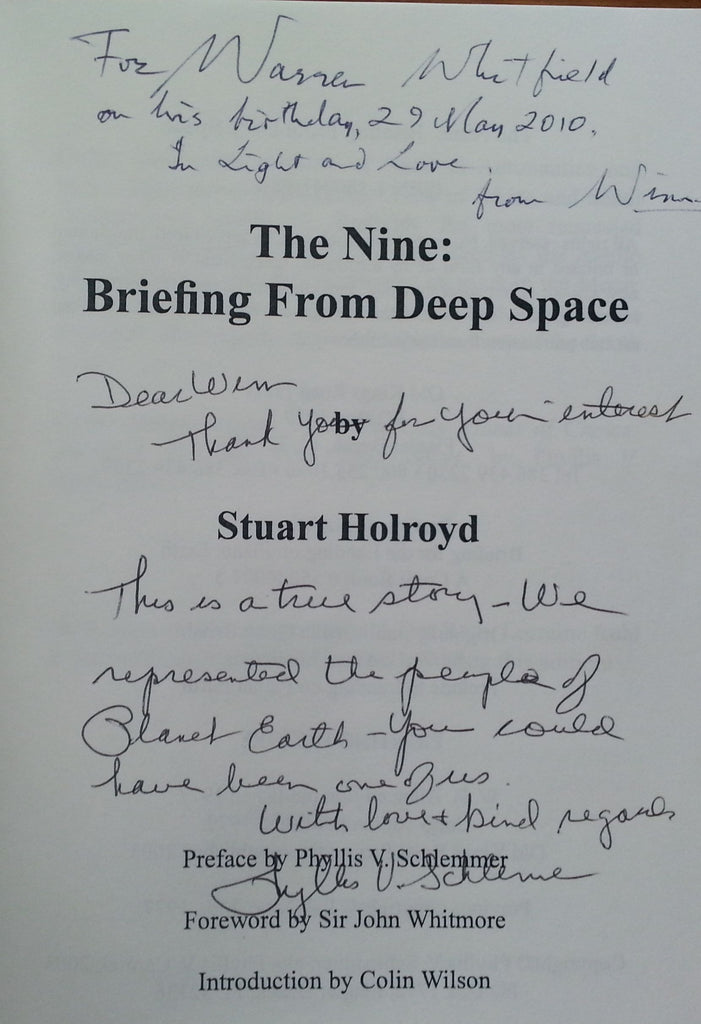 For Warren Whitfield
on his birthday, 29 May 2010.
In Light and Love.
from Wim
The Nine:
Briefing From Deep Space
Dear Wim
Thank you for your interest
by
Stuart Holroyd
This is a true story - We
represented the people of
Planet Earth - You could
have been one of us.
With love + kind regards
Preface by Phyllis V. Schlemmer
Phyllis V. Schlemmer
Foreword by Sir John Whitmore
Introduction by Colin Wilson